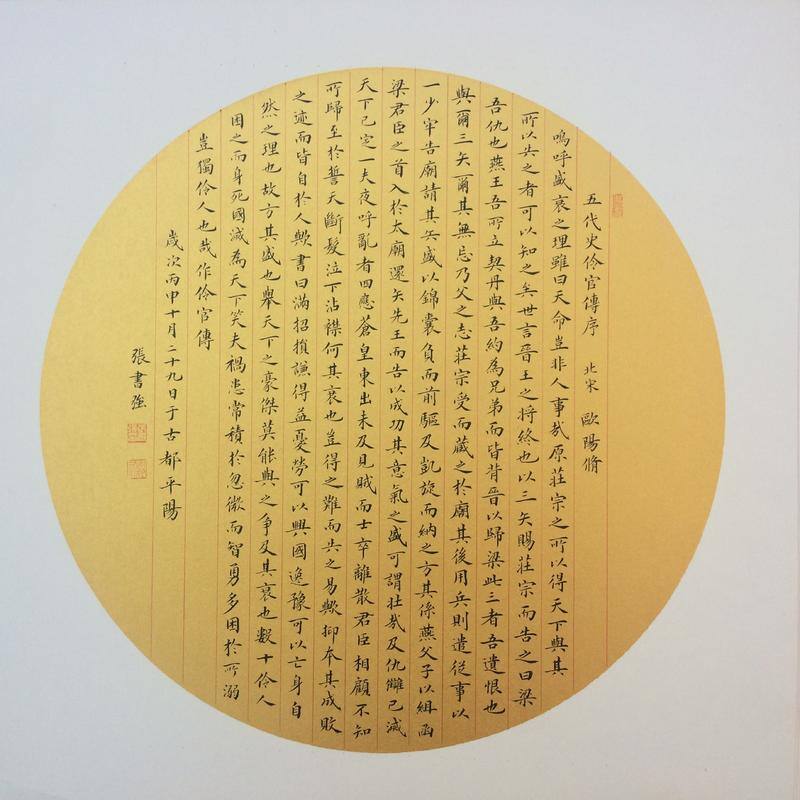 五代史伶官傳序 北宋 歐陽脩
嗚呼盛衰之理雖曰天命豈非人事哉原莊宗之所以得天下與其
所以失之者可以知之矣世言晉王之將終也以三矢賜莊宗而告之曰梁
吾仇也燕王吾所立契丹與吾約為兄弟而皆背晉以歸梁此三者吾遺恨也
與爾三矢爾其無忘乃父之志莊宗受而藏之於廟其後用兵則遣從事以
一少牢告廟請其矢盛以錦囊負而前驅及凱旋而納之方其係燕父子以組函
梁君臣之首入於太廟還矢先王而告以成功其意氣之盛可謂壯哉及仇讎已滅
天下已定一夫夜呼亂者四應蒼皇東出未及見賊而士卒離散君臣相顧不知
所歸至於誓天斷髮泣下沾襟何其衰也豈得之難而失之易歟抑本其成敗
之迹而皆自於人歟書曰滿招損謙得益憂勞可以興國逸豫可以亡身自
然之理也故方其盛也舉天下之豪傑莫能與之爭及其衰也數十伶人
困之而身死國滅為天下笑夫禍患常積於忽微而智勇多困於所溺
豈獨伶人也哉作伶官傳
歲次丙申十月二十九日于古都平陽
張書強